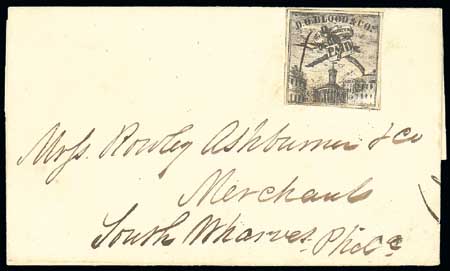 D.O. BLOOD & Co's
PAID
Messs. Rowley Ashburner & Co
Merchants
South Wharves Phila